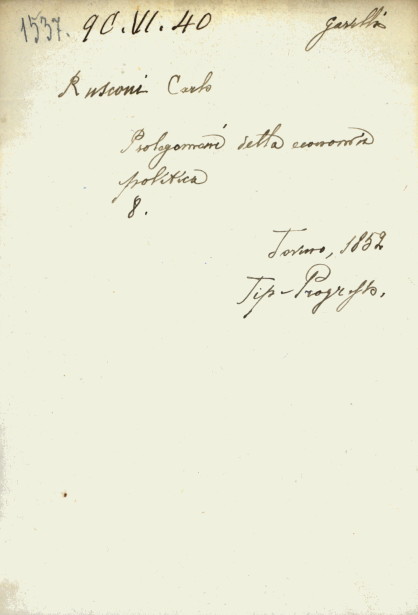 1537. 90.VI.40 garelli
Rusconi Carlo
Prolegomeni della economia
politica
8.
Torino, 1852
Tip. Progresso.